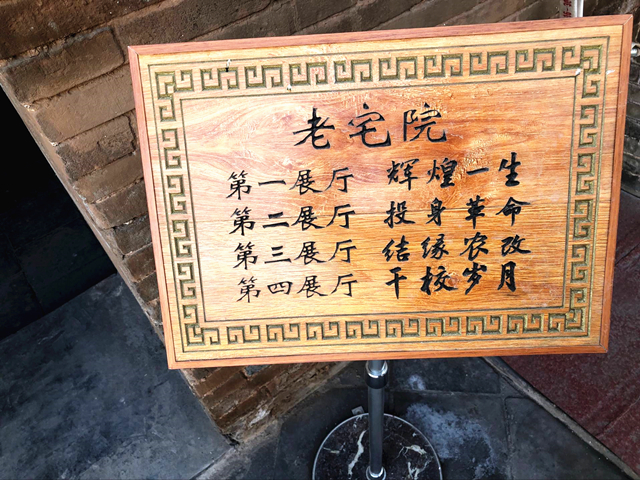 老宅院
第一展厅 辉煌一生
第二展厅 投身革命
第三展厅 结缘农改
第四展厅 干校岁月